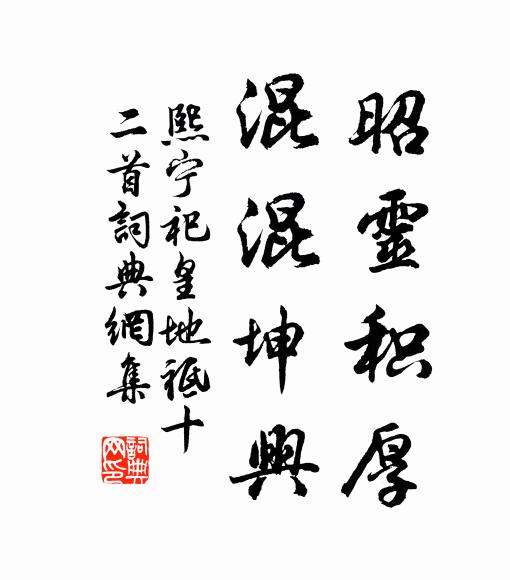 昭靈积厚
混混坤興
熙宁祀皇地祗十
二首詞典網集
詞典网印